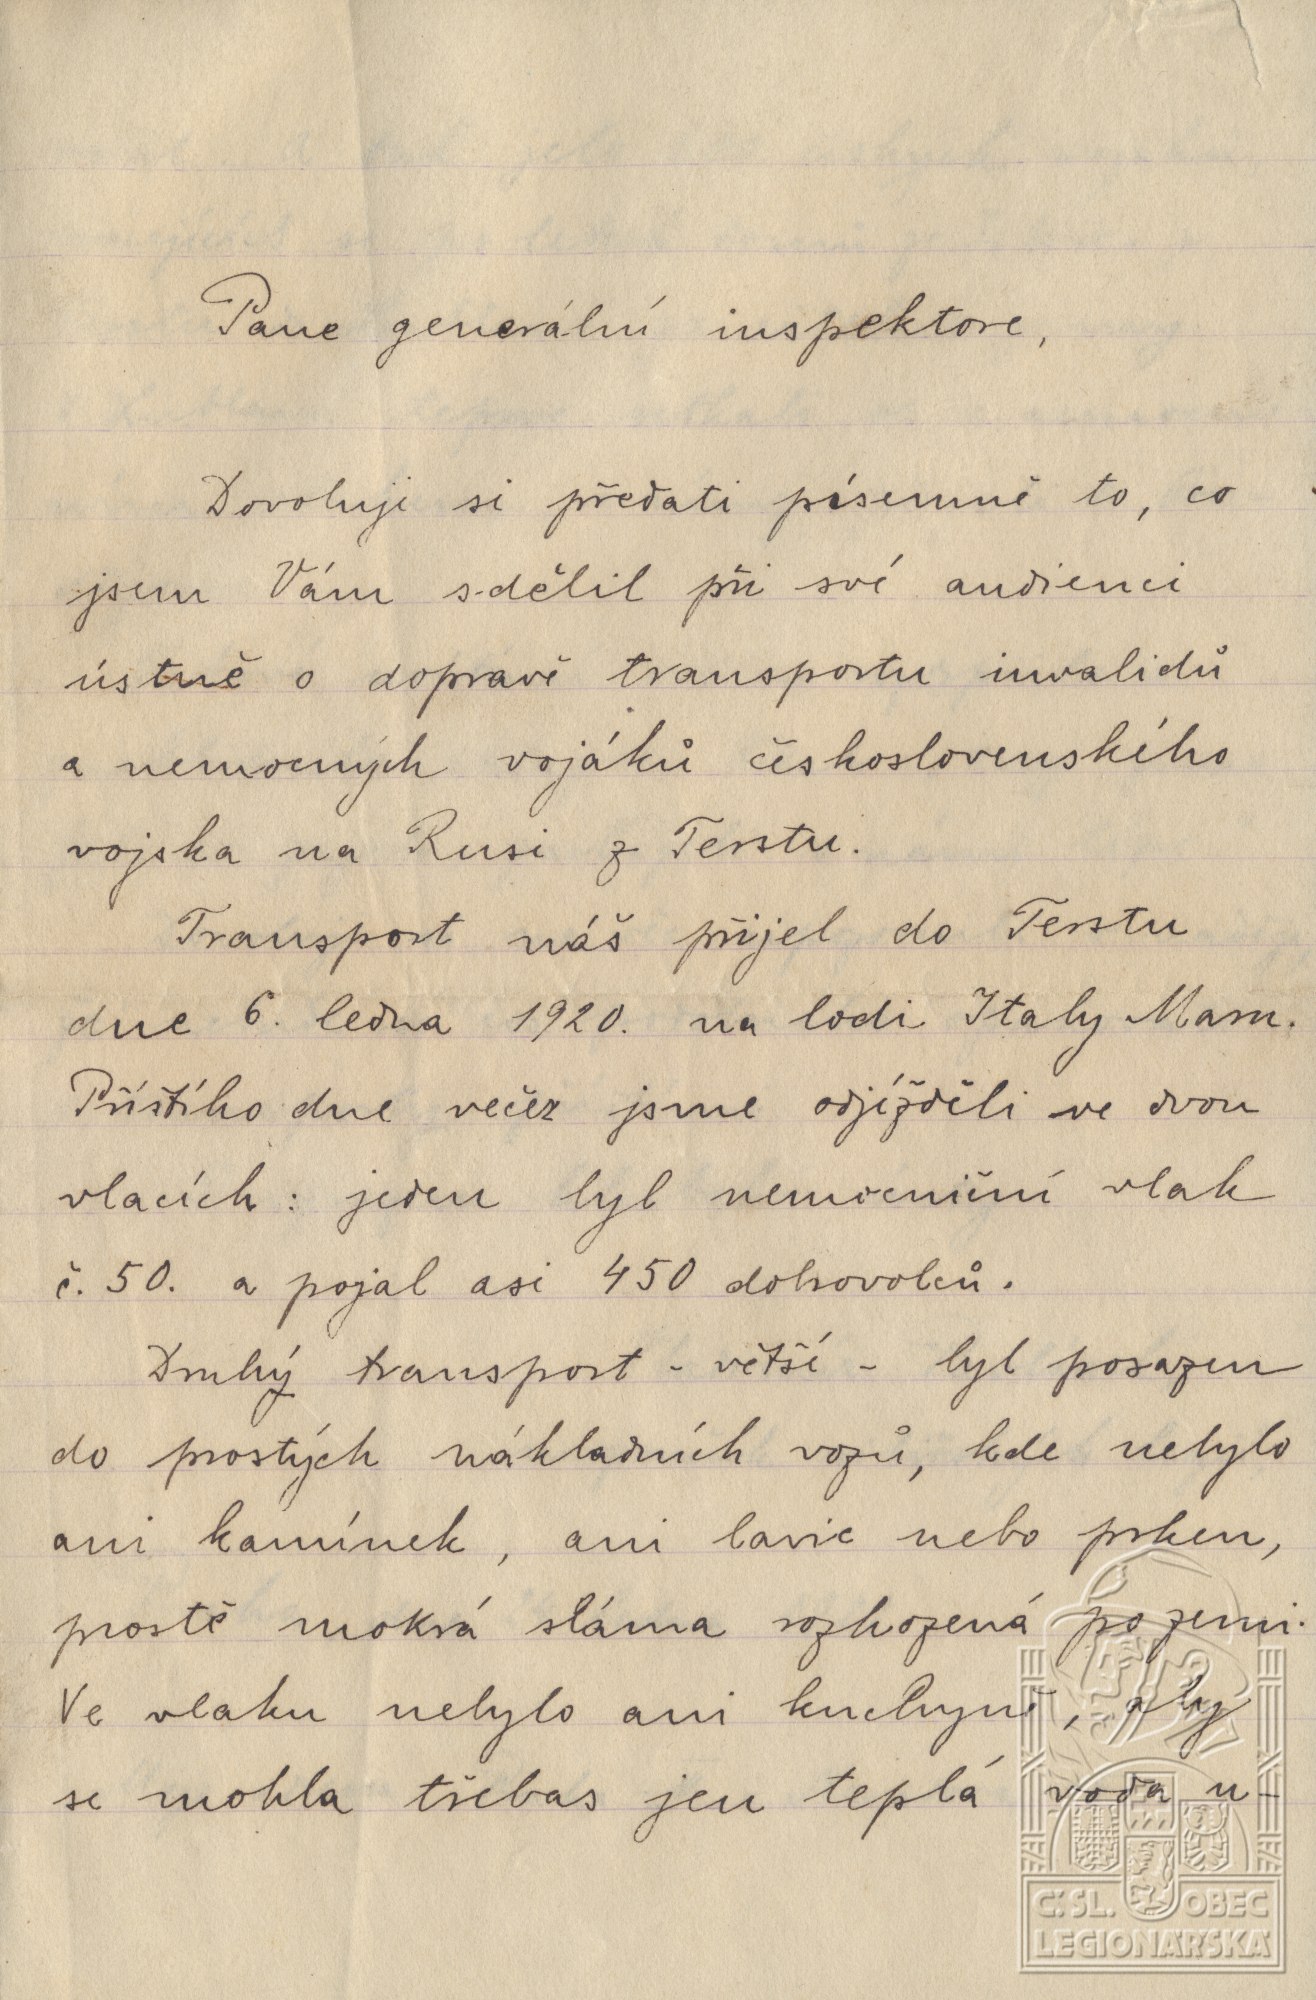 Pane generální inspektore,
Dovoluji si předati písemně to, co
jsem Vám sdělil při své audienci
ústně o dopravě transportu invalidů
a nemocných vojáků československého
vojska na Rusi z Terstu.
Transport náš přijel do Terstu
dne 6. ledna 1920. na lodi Italy Maru.
Příštího dne večer jsme odjížděli ve dvou
vlacích: jeden byl nemocniční vlak
č. 50. a pojal asi 450 dobrovolců.
Druhý transport - větší - byl posazen
do prostých nákladních vozů, kde nebylo
ani kamínek, ani lavic nebo prken,
prostě mokrá sláma rozhozená po zemi.
Ve vlaku nebylo ani kuchyně, aby
se mohla třebas jen teplá voda u-
Č.SL. OBEC
LEGIONÁŘSKÁ